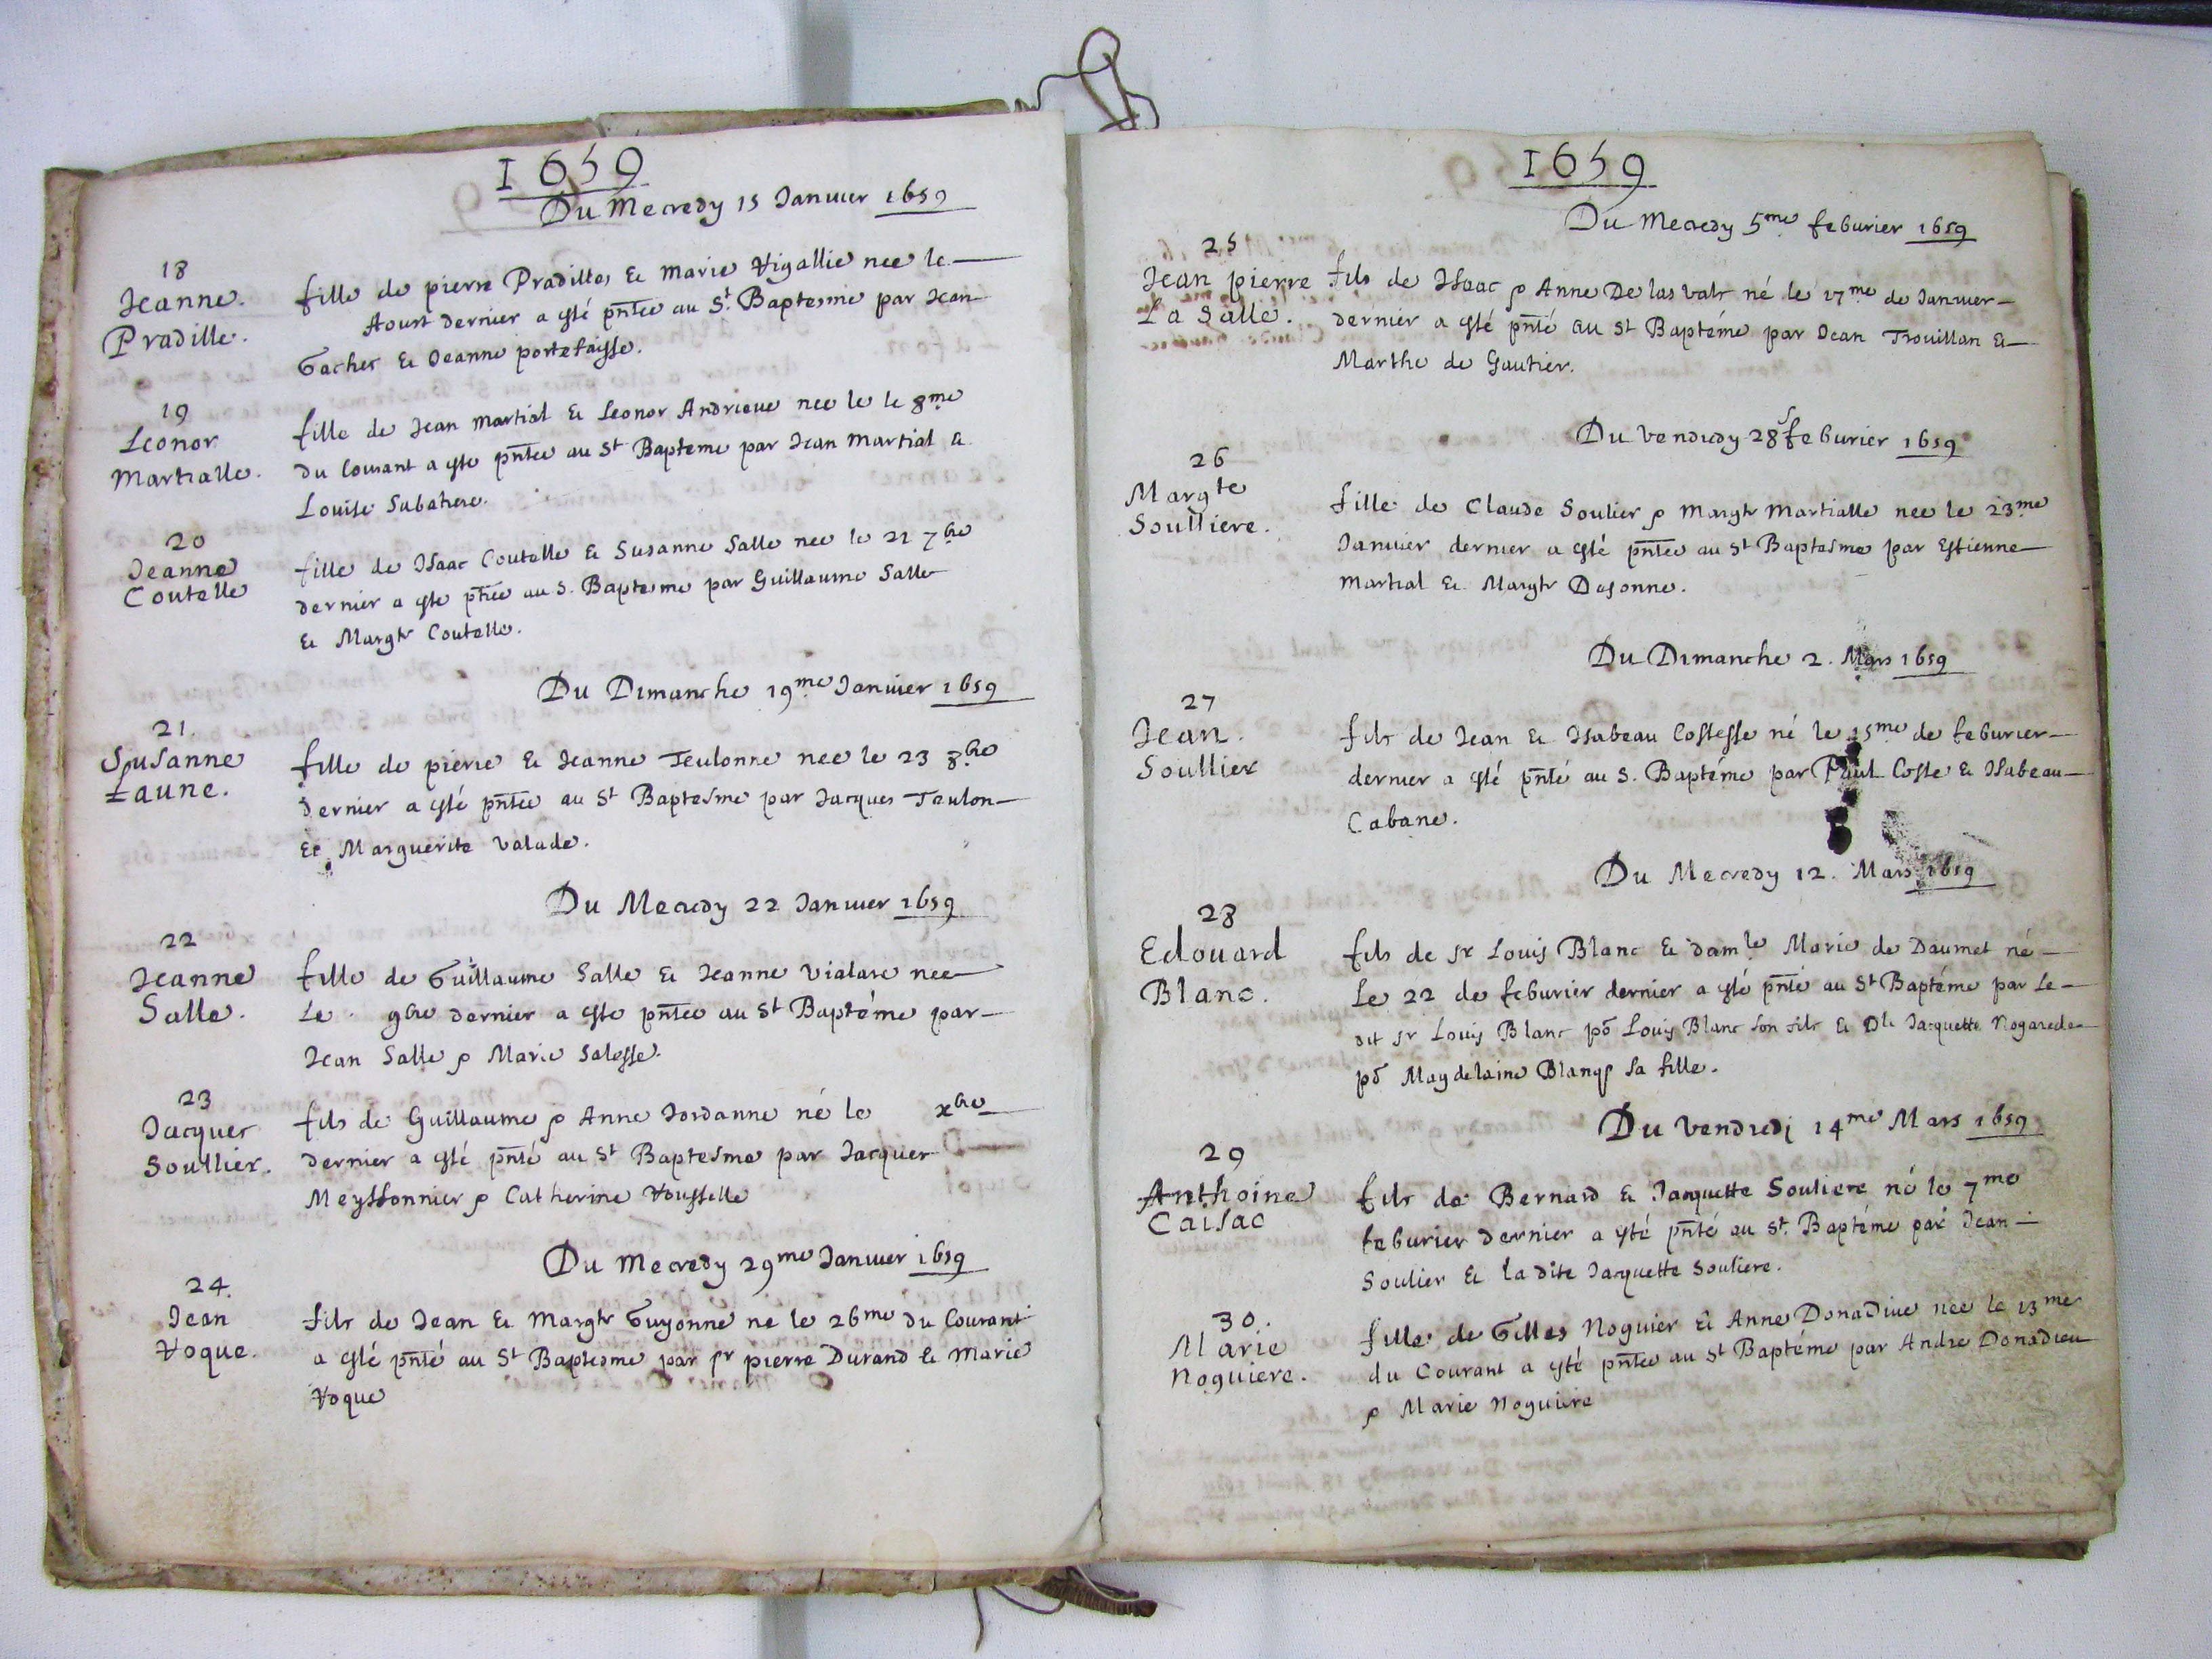 1659
Du Mecredy 15 Januier 1659
18
Jeanne.
Pradille.
fille de pierre Pradilles & Marie Vigallie nee le
Aoust dernier a esté pñtée au St. Baptesme par Jean
Gacher & Jeanne portefaisse.
19
Leonor
Martialle.
fille de Jean Martial & Leonor Andrieue nee le le 8me
du Courant a este pñtee au St Bapteme par Jean Martial &
Louise Sabatiere.
20
Jeanne
Coutelle
fille de Isaac Coutelle & Susanne Salle nee le 21 7bre
dernier a este pñtee au S. Baptesme par Guillaume Salle
& Margte Coutelle.
Du Dimanche 19me Januier 1659
21.
Susanne
Laune.
fille de pierre & Jeanne Teulonne nee le 23 8bre
dernier a esté pñtee au St Baptesme par Jacques Teulon
Et Marguerite Valade.
Du Mecredy 22 Januier 1659
22
Jeanne
Salle.
fille de Guillaume Salle & Jeanne Vialare nee
Le 9bre dernier a este pñtee au St Baptéme par
Jean Salle & Marie Salesse.
23
Jacques
Soullier.
fils de Guillaume & Anne Jordanne né le xbre
dernier a esté pñté au St Baptesme par Jacques
Meyssonnier & Catherine Vousselle
Du Mecredy 29me Januier 1659
24.
Jean
Voque.
fils de Jean & Margte Guyonne né le 26me du Courant
a esté pñté au St Baptesme par sr pierre Durand & Marie
Voque
1659
Du Mecredy 5me feburier 1659
25
Jean pierre
La Salle.
fils de Isaac & Anne De las Vals né le 17me de Januier
dernier a esté pñté au St Baptéme par Jean Trouillan &
Marthe de Gautier.
Du Vendredy 28 feburier 1659
26
Margte
Soulliere.
fille de Claude Soulier & Margte Martialle nee le 23me
Januier dernier a esté pñtee au St Baptesme par Estienne
Martial & Margte Dasonne.
Du Dimanche 2. Mars 1659
27
Jean.
Soullier
fils de Jean & Isabeau Costesse né le 15me de feburier
dernier a esté pñté au S. Baptéme par Paul Coste & Isabeau
Cabane.
Du Mecredy 12. Mars 1659
28
Edouard
Blanc.
fils de sr Louis Blanc & damle Marie de Daumet né
Le 22 de feburier dernier a esté pñté au St Baptéme par Le
dit sr Louis Blanc põ Louis Blanc son fils & Dle Jacquette Nogarede
põ Magdelaine Blanque sa fille.
Du Vendredi 14me Mars 1659
29
Anthoine
Caisac
fils de Bernard & Jacquette Souliere né le 7me
feburier dernier a esté pñté au St. Baptéme par Jean
Soulier & la dite Jacquette Souliere.
30.
Marie
Noguiere.
fille de Gilles Noguier & Anne Donadiue nee le 13me
du Courant a esté pñtee au St Baptéme par Andre Donadieu
& Marie Noguiere